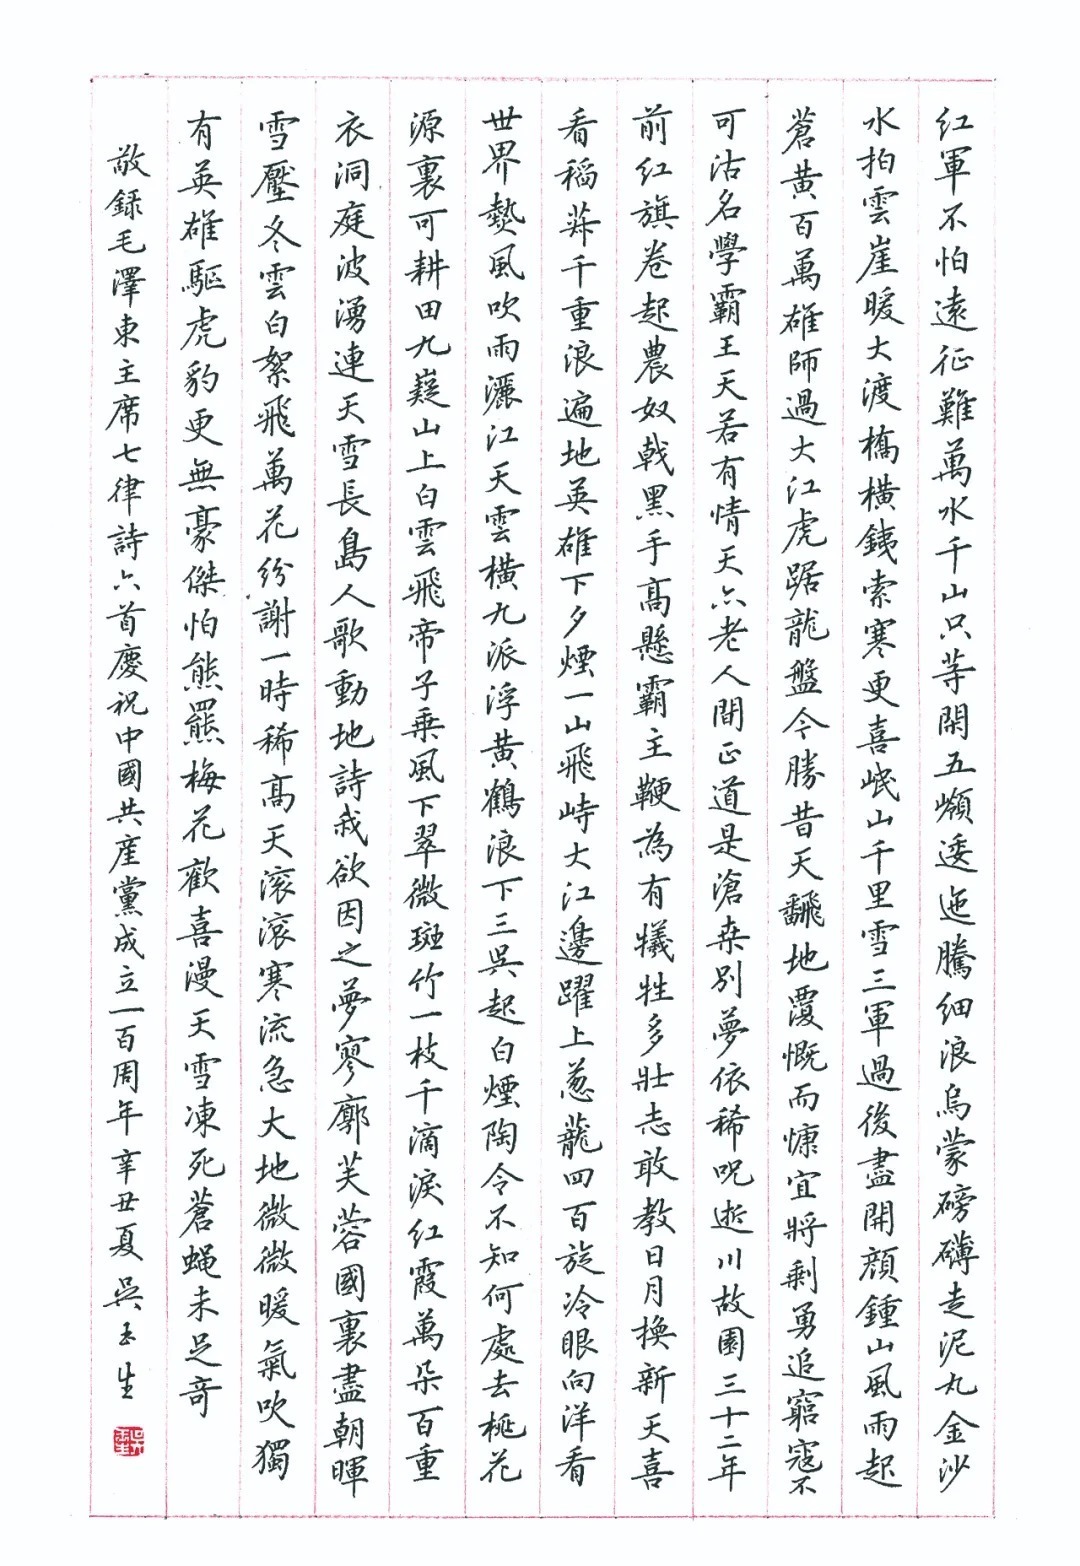 紅軍不怕遠征難萬水千山只等閑五嶺逶迤騰細浪烏蒙磅礴走泥丸金沙
水拍雲崖暖大渡橋橫鐵索寒更喜岷山千里雪三軍過後盡開顏鍾山風雨起
蒼黃百萬雄師過大江虎踞龍盤今勝昔天翻地覆慨而慷宜將剩勇追窮寇不
可沽名學霸王天若有情天亦老人間正道是滄桑別夢依稀咒逝川故園三十二年
前紅旗卷起農奴戟黑手高懸霸主鞭為有犧牲多壯志敢教日月換新天喜
看稻菽千重浪遍地英雄下夕煙一山飛峙大江邊躍上蔥蘢四百旋冷眼向洋看
世界熱風吹雨灑江天雲橫九派浮黃鶴浪下三吳起白煙陶令不知何處去桃花
源裏可耕田九嶷山上白雲飛帝子乘風下翠微斑竹一枝千滴淚紅霞萬朵百重
衣洞庭波湧連天雪長島人歌動地詩我欲因之夢寥廓芙蓉國裏盡朝暉
雪壓冬雲白絮飛萬花紛謝一時稀高天滾滾寒流急大地微微暖氣吹獨
有英雄驅虎豹更無豪傑怕熊羆梅花歡喜漫天雪凍死蒼蠅未足奇
敬録毛澤東主席七律詩六首慶祝中國共產黨成立一百周年辛丑夏吳玉生